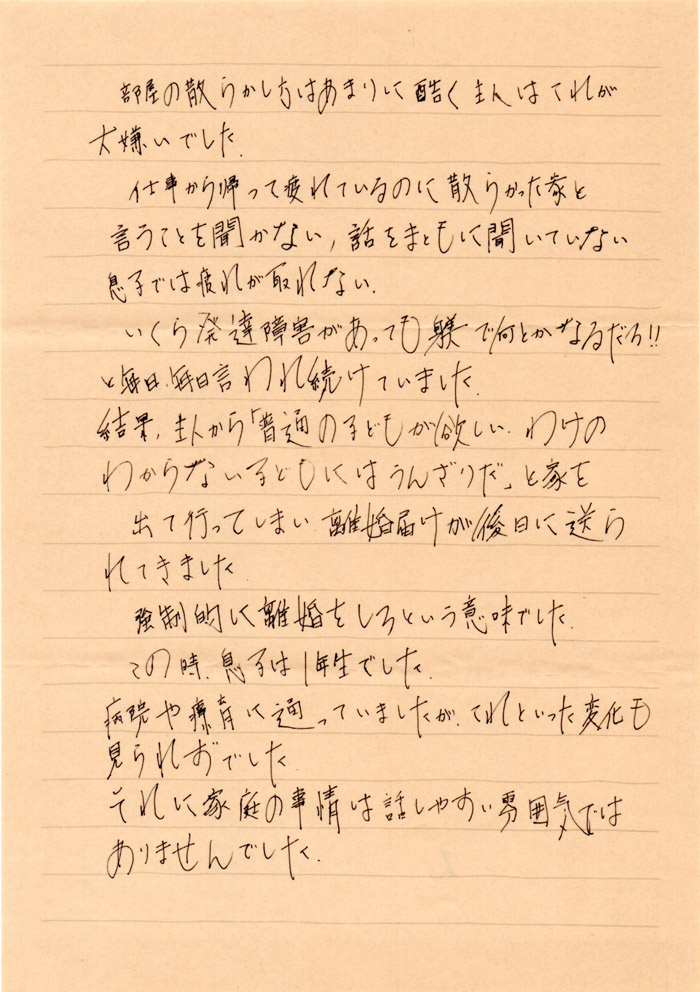 部屋の散らかし方はあまりに酷く主人はそれが
大嫌いでした.
仕事から帰って疲れているのに散らかった家と
言うことを聞かない, 話をまともに聞いていない
息子では疲れが取れない.
いくら発達障害があっても躾で何とかなるだろ!!
と毎日、毎日言われ続けていました.
結果, 主人から「普通の子どもが欲しい. わけの
わからない子どもにはうんざりだ」と家を
出て行ってしまい離婚届けが後日に送ら
れてきました
強制的に離婚をしろという意味でした.
この時、息子は1年生でした.
病院や療育に通っていましたが、これといった変化も
見られずでした.
それに家庭の事情は話しやすい雰囲気では
ありませんでした.